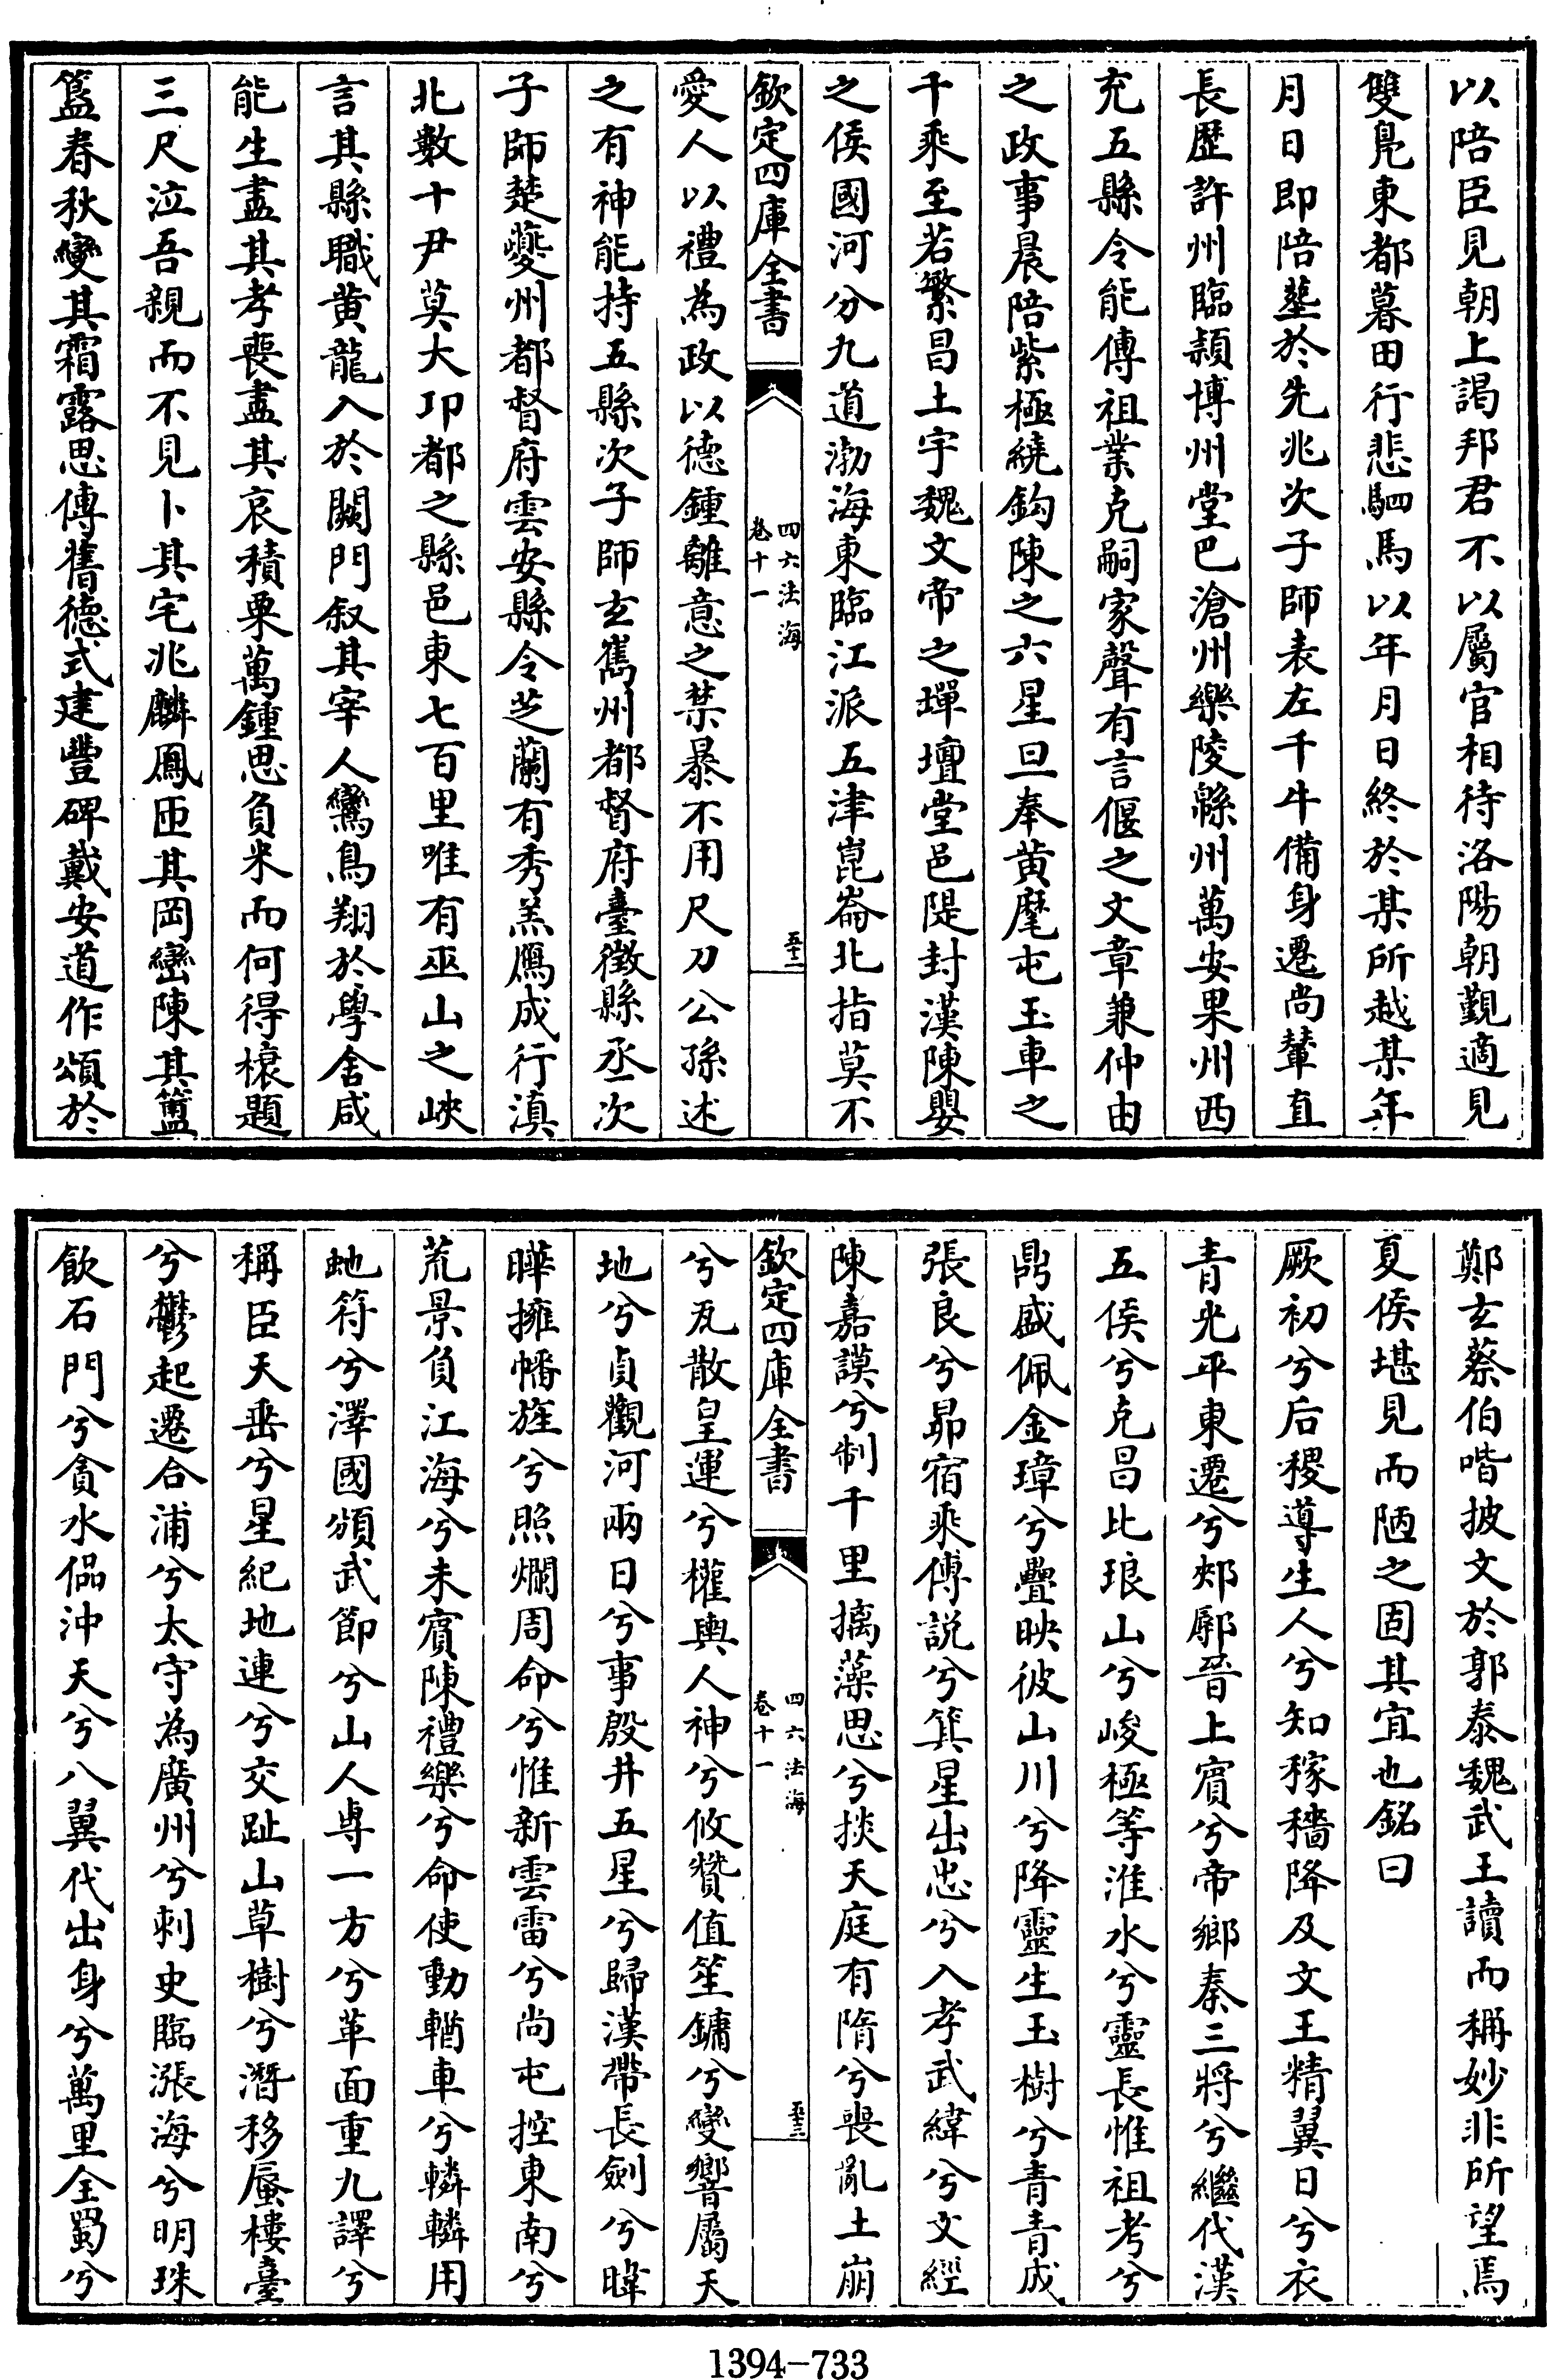 以陪臣見朝上謁邦君不以屬官相待洛陽朝覲適見
雙鳧東都暮田行悲駟馬以年月日終於某所越某年
月日即陪塟於先兆次子師表左千牛備身遷尚輦直
長歴許州臨潁博州堂邑滄州樂陵緜州萬安果州西
充五縣令能傳祖業克嗣家聲有言偃之文章兼仲由
之政事晨陪紫極繞鈎陳之六星旦奉黄麾屯玉車之
千乘至若繁昌土宇魏文帝之墠壇堂邑隄封漢陳嬰
之侯國河分九道渤海東臨江派五津崑崙北指莫不
欽定四庫全書
四六法海
卷十一
五十二
愛人以禮為政以德鍾離意之禁暴不用尺刀公孫述
之有神能持五縣次子師玄雟州都督府臺徵縣丞次
子師楚夔州都督府雲安縣令芝蘭有秀羔鴈成行滇
北數十尹莫大卭都之縣邑東七百里唯有巫山之峽
言其縣職黄龍入於闕門叙其宰人鸞鳥翔於學舍咸
能生盡其孝喪盡其哀積粟萬鍾思負米而何得榱題
三尺泣吾親而不見卜其宅兆麟鳳匝其岡巒陳其簠
簋春秋變其霜露思傳舊德式建豐碑戴安道作頌於
鄭玄蔡伯喈披文於郭泰魏武王讀而稱妙非所望焉
夏侯堪見而陋之固其宜也銘曰
厥初兮后稷導生人兮知稼穡降及文王精翼日兮衣
青光平東遷兮郟鄏晉上賓兮帝鄉秦三將兮繼代漢
五侯兮克昌比琅山兮峻極等淮水兮靈長惟祖考兮
鼎盛佩金璋兮疊映彼山川兮降靈生玉樹兮青青成
張良兮昴宿乘傅説兮箕星出忠兮入孝武緯兮文經
陳嘉謨兮制千里摛藻思兮掞天庭有隋兮喪亂土崩
欽定四庫全書
四六法海
卷十一
五十三
兮瓦散皇運兮權輿人神兮攸贊值笙鏞兮變響屬天
地兮貞觀河兩日兮事殷井五星兮歸漢帶長劍兮暐
曄擁幡旌兮照爛周命兮惟新雲雷兮尚屯控東南兮
荒景負江海兮未賓陳禮樂兮命使動輶車兮轔轔用
虵符兮澤國頒武節兮山人專一方兮革面重九譯兮
稱臣天垂兮星紀地連兮交趾山草樹兮潛移蜃樓臺
兮鬱起遷合浦兮太守為廣州兮刺史臨漲海兮明珠
飲石門兮貪水偘沖天兮八翼代出身兮萬里全蜀兮
1394-733